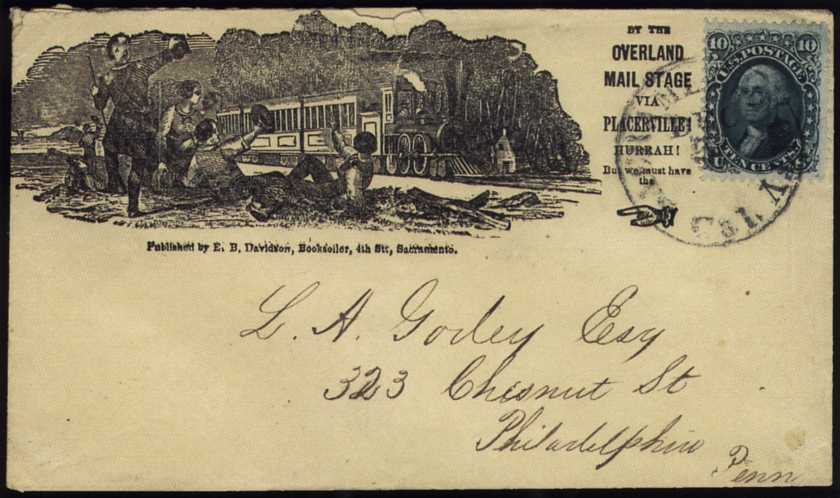 BY THE
OVERLAND
MAIL STAGE
VIA
PLACERVILLE!
HURRAH!
But we must have
the
10 10
U.S. POSTAGE
TEN CENTS
U S
Published by E. B. Davidson, Bookseller, 4th Stt, Sacramento.
L. A. Godey Esq
323 Chesnut St
Philadelphia
Penn